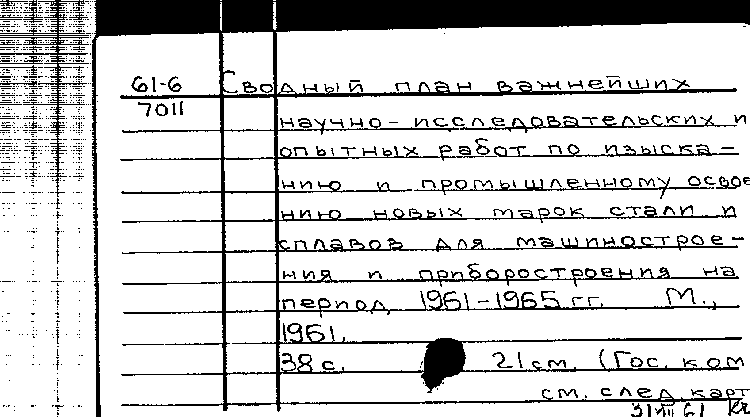 61-6 Сводный план важнейших
7011
научно-исследовательских и
опытных работ по изыска-
нию и промышленному освое
нию новых марок стали и
сплавов для машинострое-
ния и приборостроения на
период 1961-1965 гг. М.,
1961.
38 с. 21 см. (Гос. ком
см. след. карт